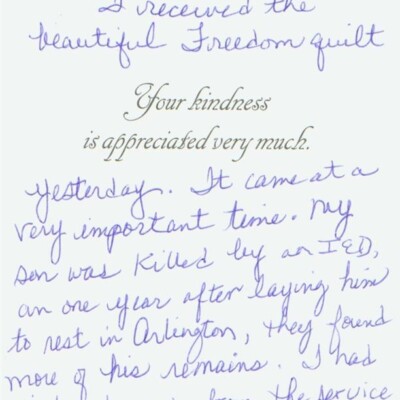 I received the
beautiful Freedom quilt
Your kindness
is appreciated very much.
yesterday. It came at a
very important time. My
son was killed by an IED,
an one year after laying him
to rest in Arlington, they found
more of his remains. I had
the service